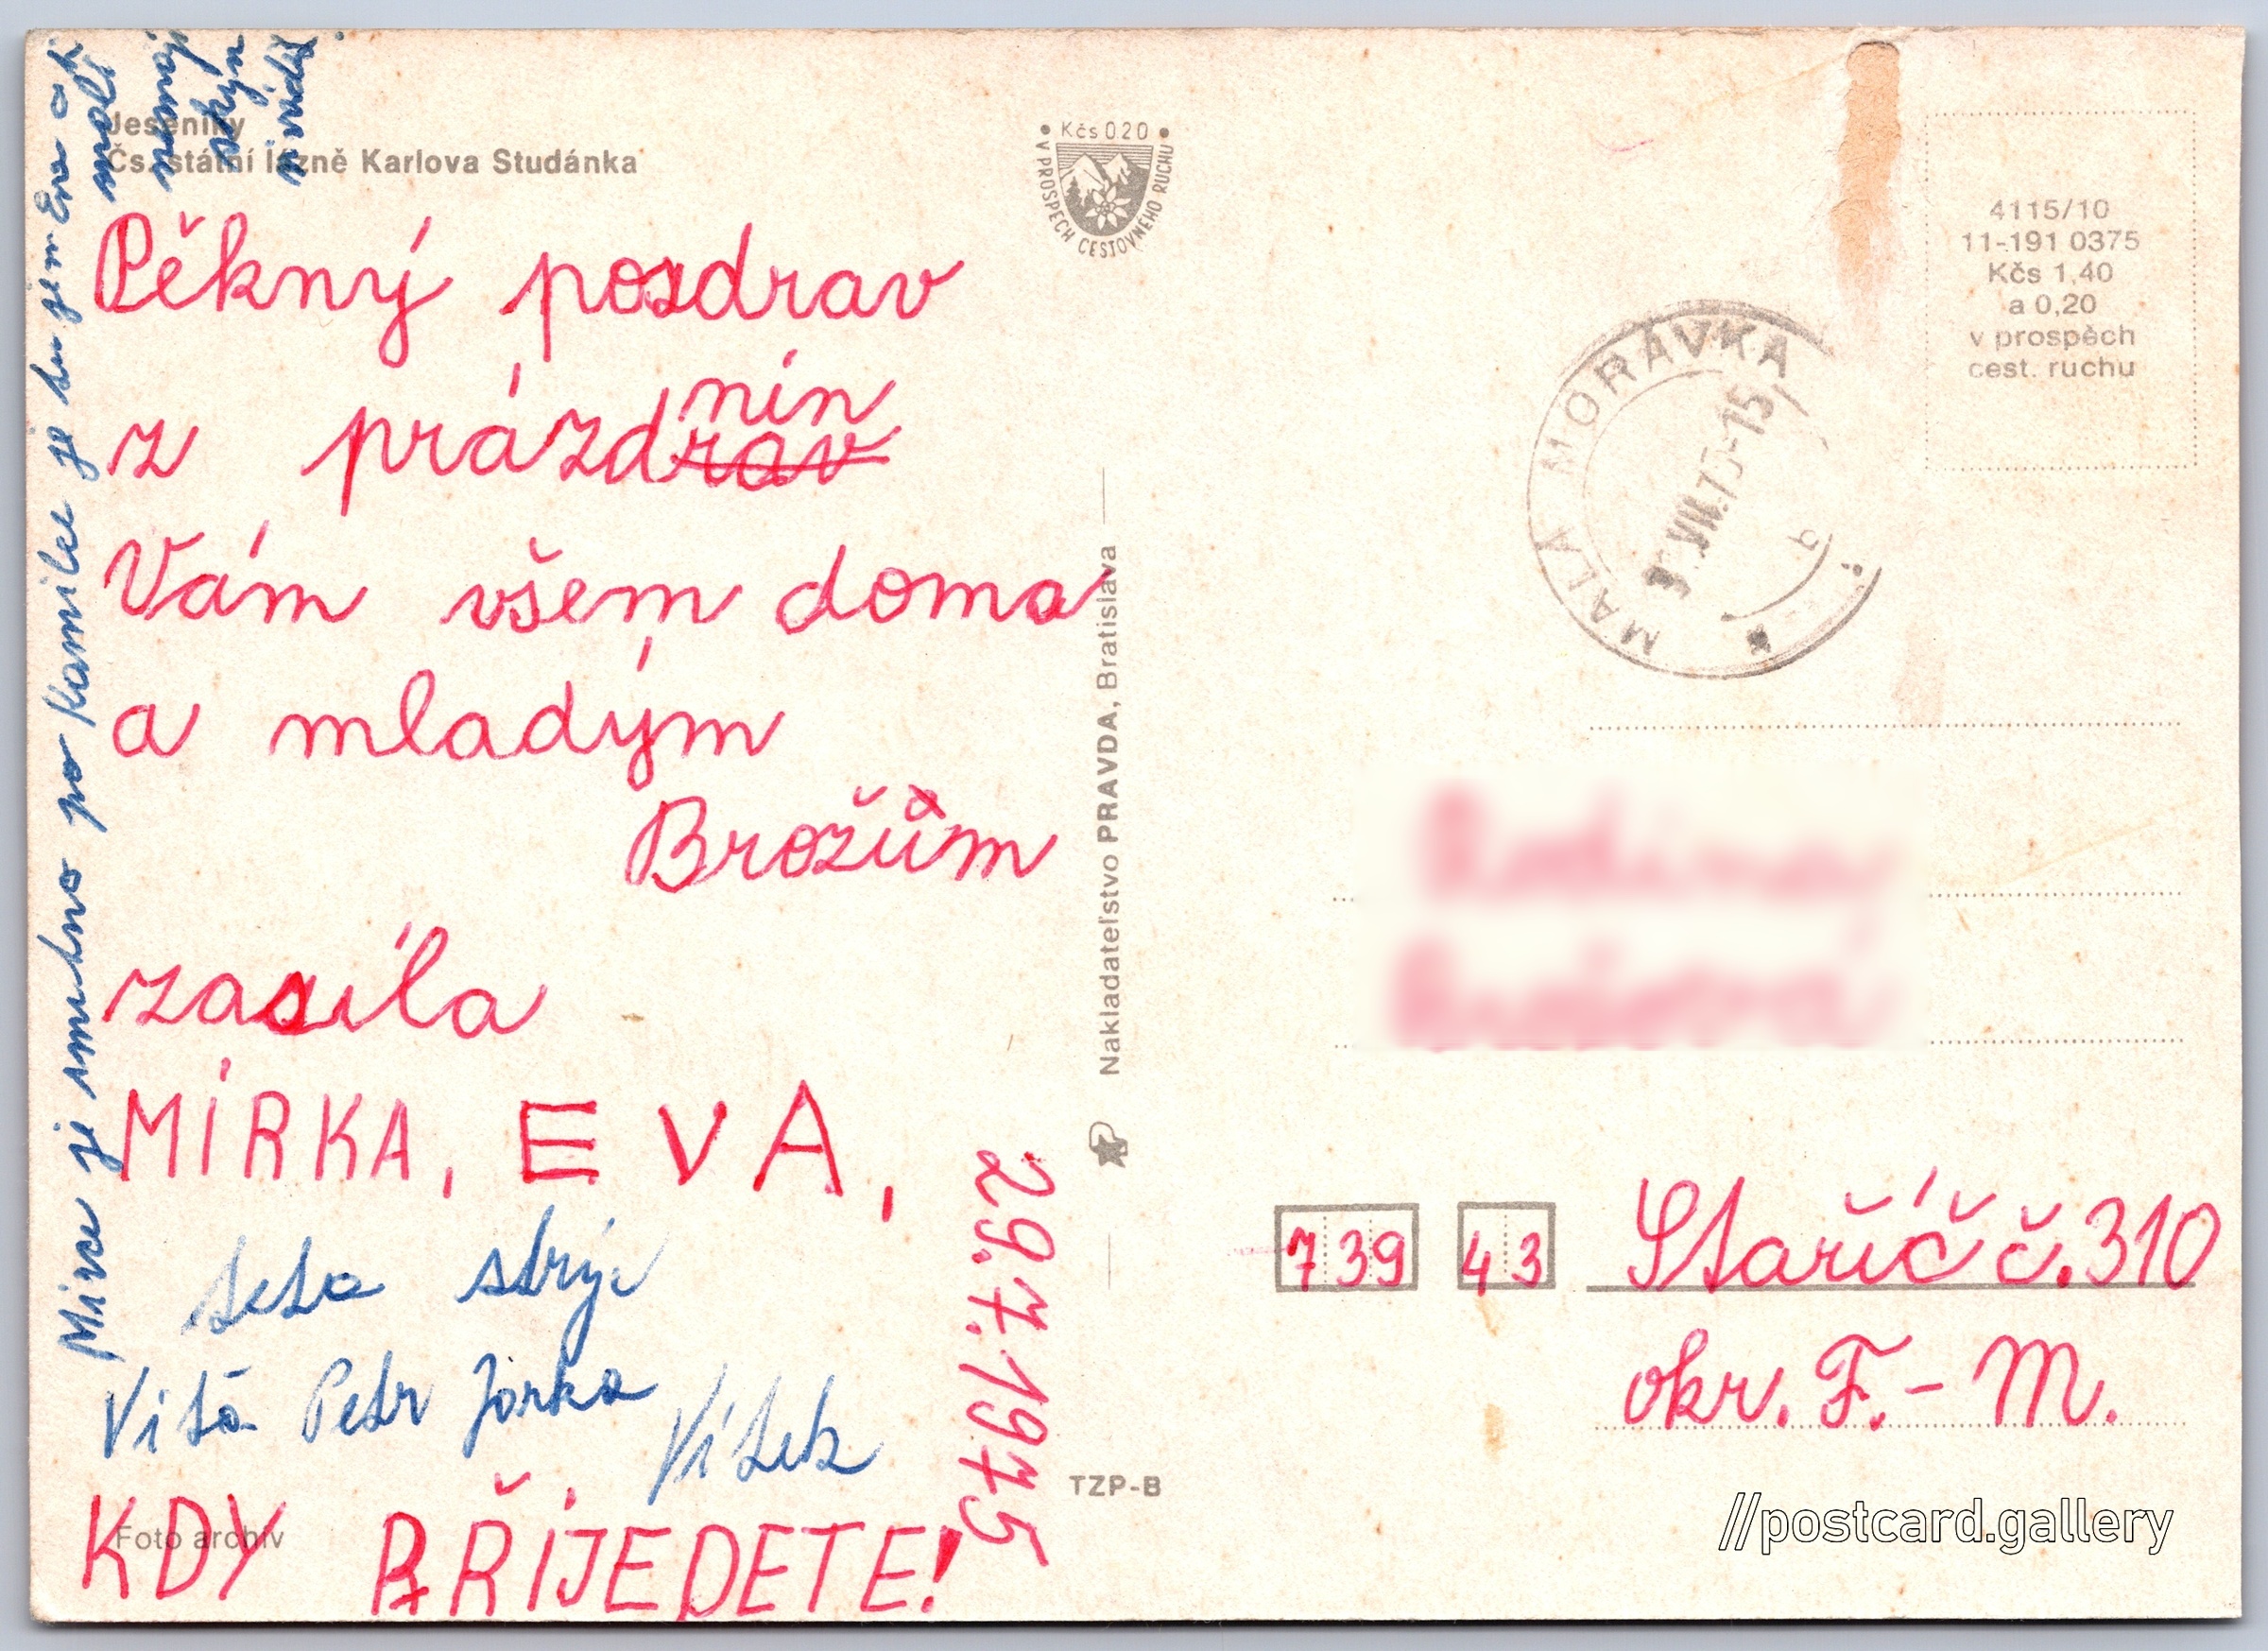 Jeseníky
Čs. státní lázně Karlova Studánka
Pěkný pozdrav
z prázdnin
rav
Vám všem doma
a mladým
Brožům
zasíla
MÍRKA, EVA,
teta strýc
Víťa Petr Jirka
Vítek
KDY PŘÍJEDETE!
Foto archív
29.7.1975
Mirce je smutno po Kamilce je tu jen Eva a
malí
nemaj
• Kčs 0.20 •
V PROSPĚCH CESTOVNÉHO RUCHU
Nakladateľstvo PRAVDA, Bratislava
TZP-B
4115/10
11-191 0375
Kčs 1,40
a 0,20
v prospěch
cest. ruchu
MALÁ MORÁVKA
VII.75-15
b
739 43 Staříč č.310
okr. F.-M.
//postcard.gallery